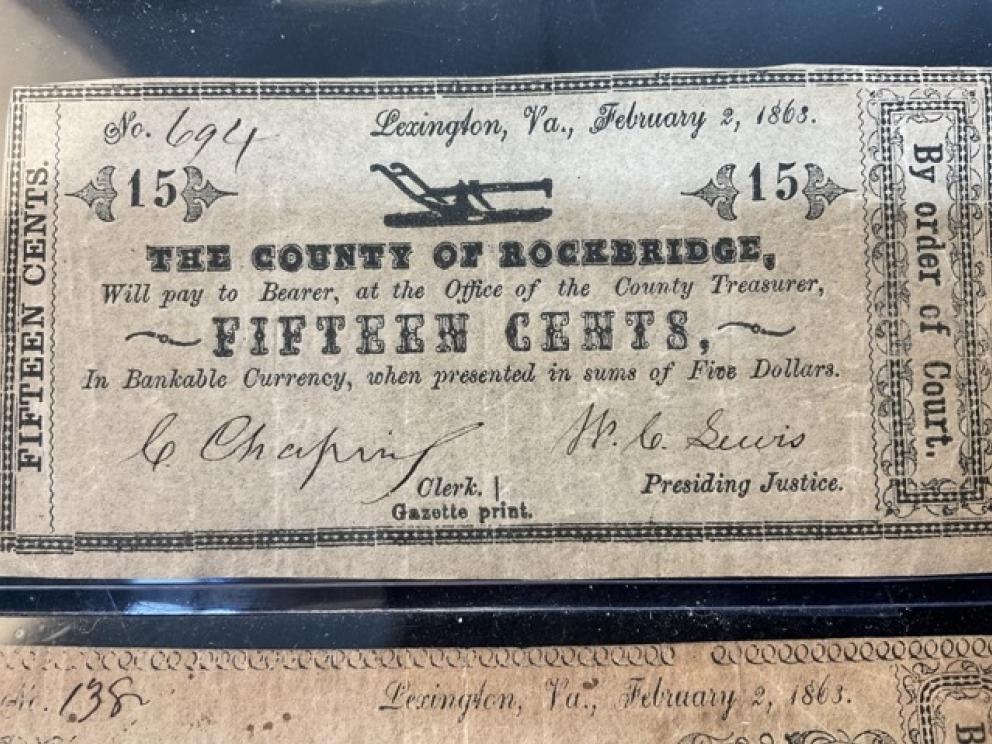 FIFTEEN CENTS.
No. 694
Lexington, Va., February 2, 1863.
15
15
THE COUNTY OF ROCKBRIDGE,
Will pay to Bearer, at the Office of the County Treasurer,
FIFTEEN CENTS,
In Bankable Currency, when presented in sums of Five Dollars.
C Chapin
W. C. Lewis
Clerk.
Presiding Justice.
Gazette print.
By order of Court.
No. 138
Lexington, Va., February 2, 1863.
B